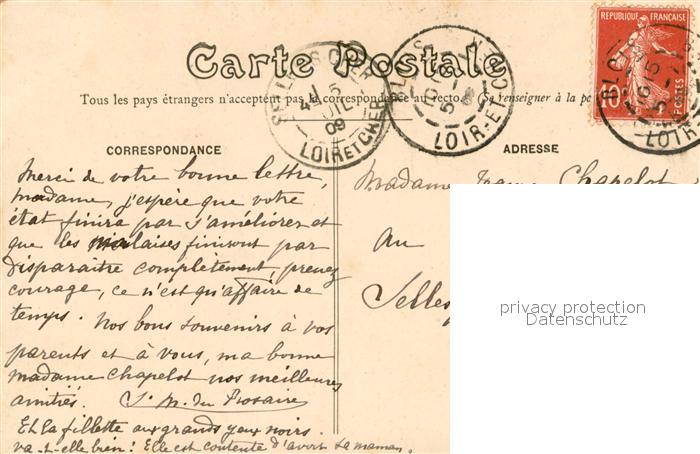 Carte Postale
Tous les pays étrangers n'acceptent pas la correspondance au recto (Se renseigner à la po
CORRESPONDANCE
Merci de votre bonne lettre,
Madame, j'espère que votre
état finira par s'améliorer et
que les malaises finiront par
disparaitre complètement, prenez
courage, ce n'est qu'affaire de
temps. Nos bons souvenirs à vos
parents et à vous, ma bonne
madame Chapelot nos meilleures
amitiés. Sr M. du Rosaire
Et la fillette aux grands yeux noirs.
va-t-elle bien? Elle est contente d'avoir sa maman.
ADRESSE
Madame Chapelot
au
Selles
REPUBLIQUE FRANÇAISE
10
POSTES
LOIR ET CHER
5
09
BLOIS
LOIR-ET-CH
BLOIS
LOIR
privacy protection
Datenschutz